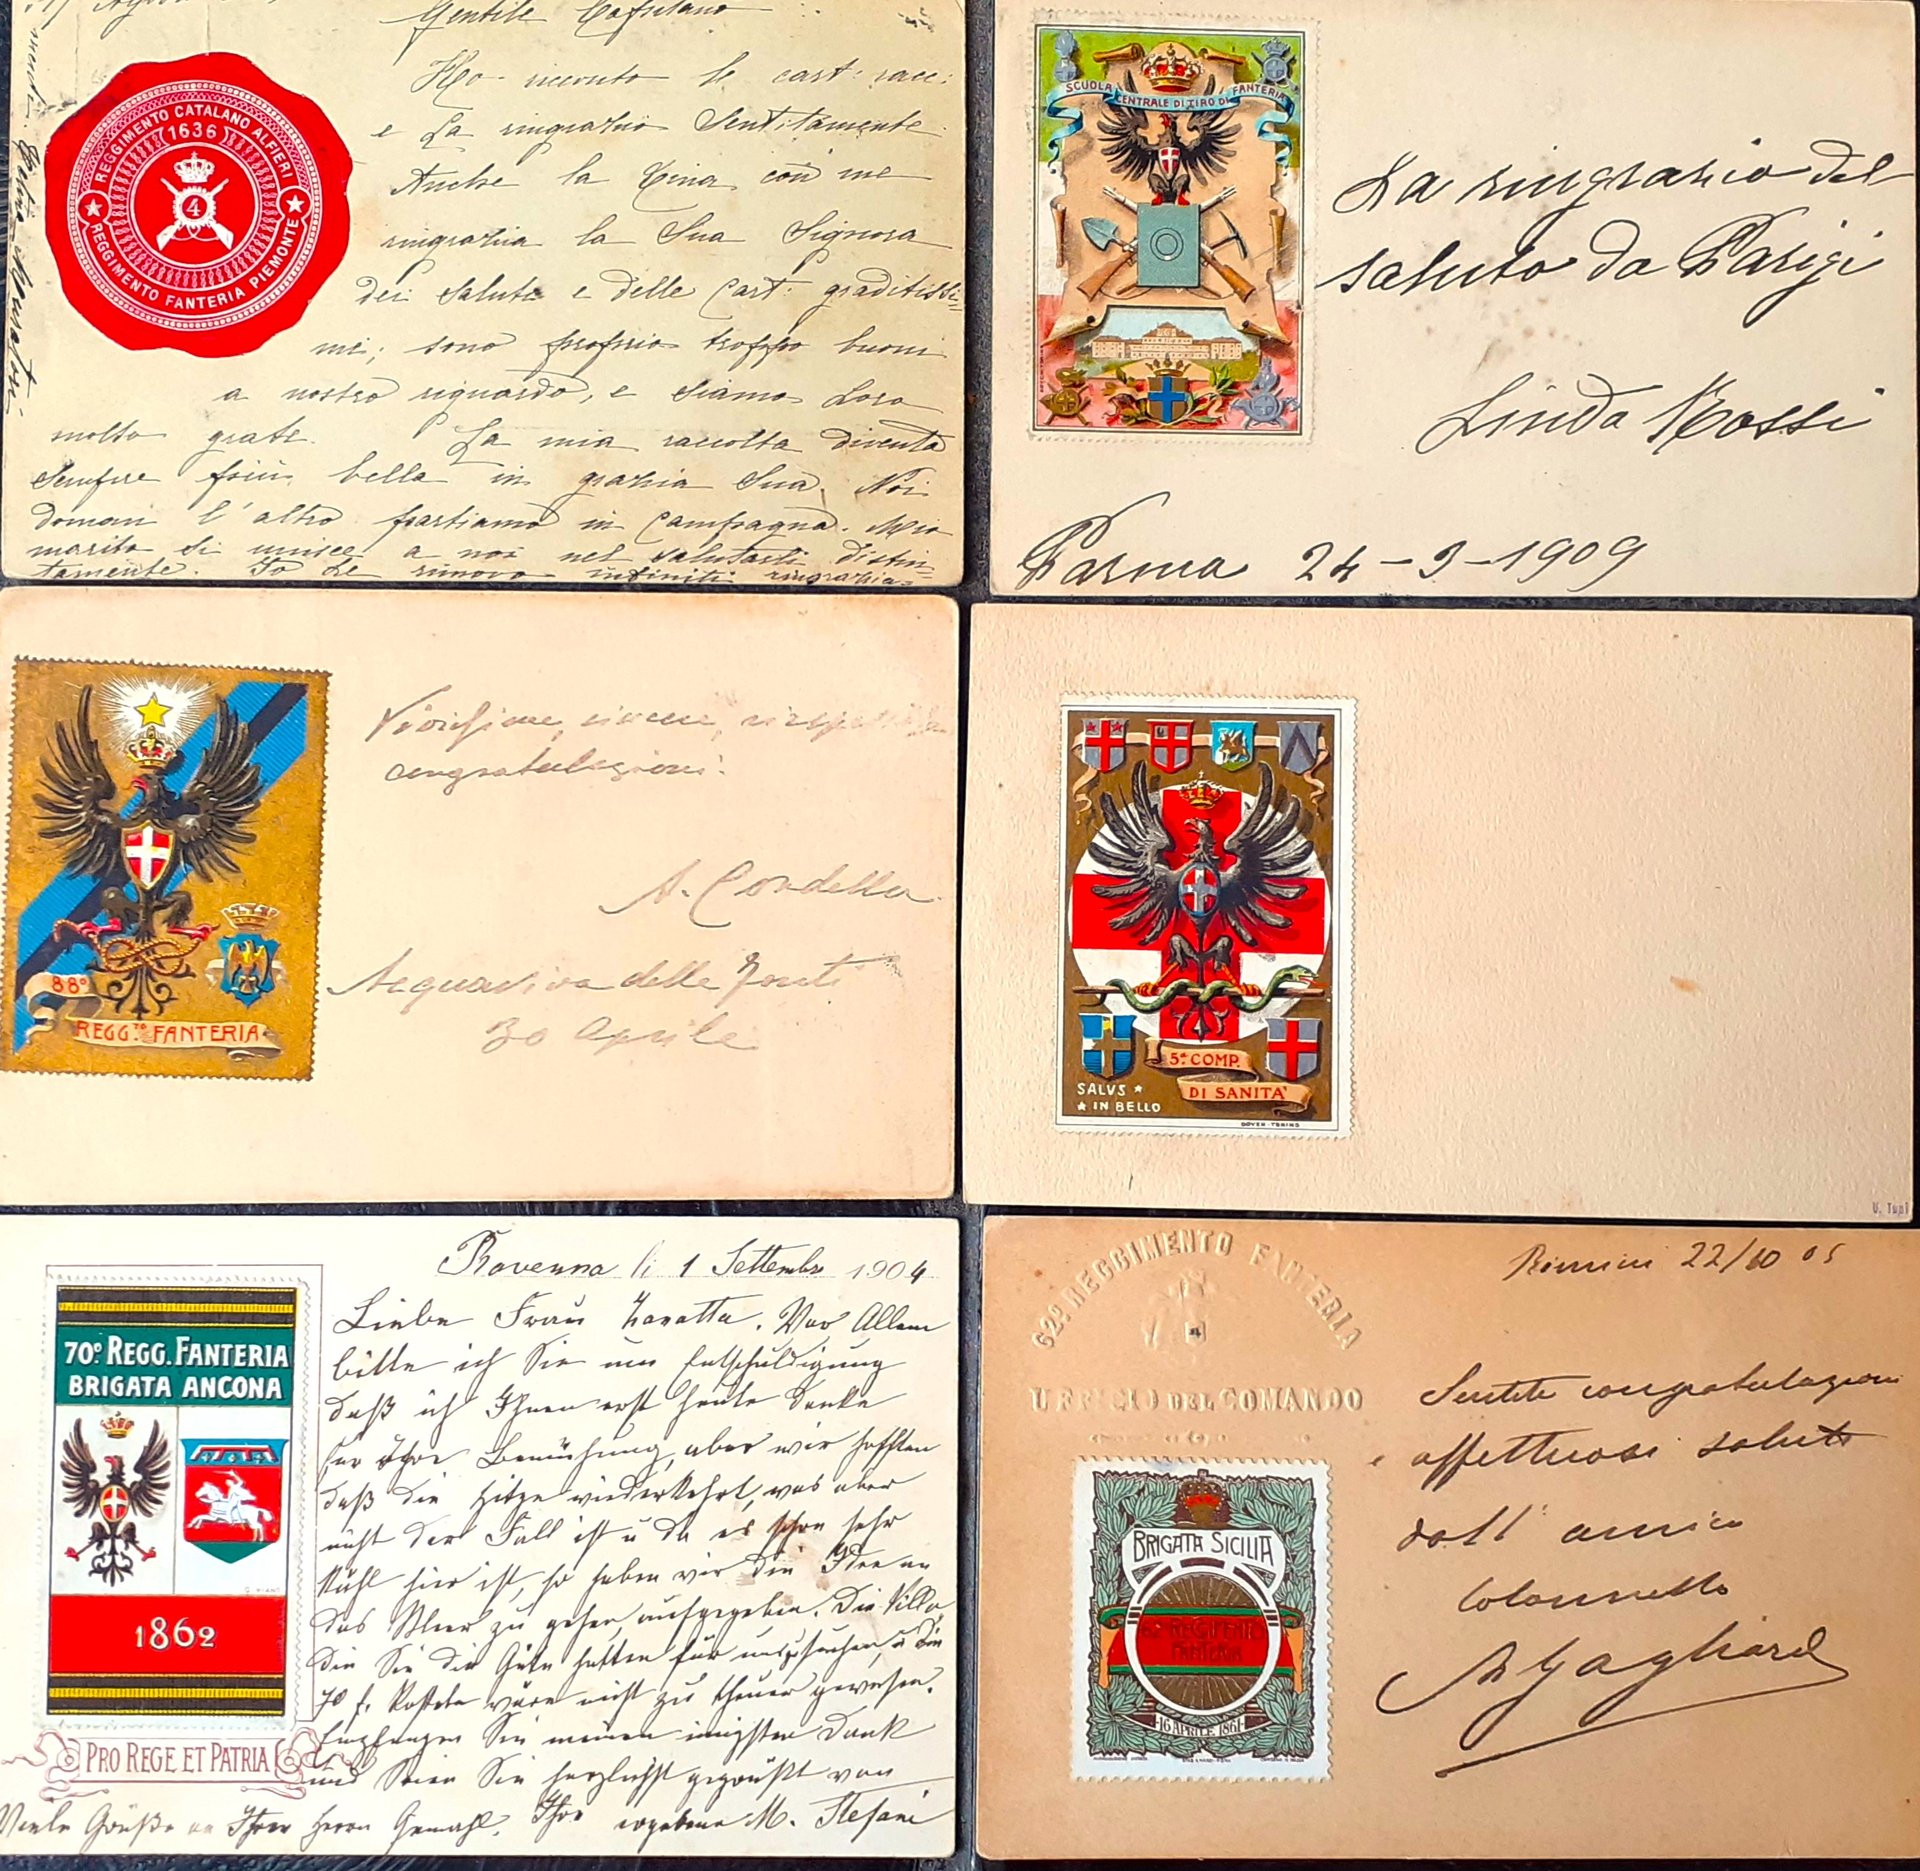 Gentile Capitano
Ho ricevuto le cart: racc:
e La ringrazio Sentitamente.
Anche la Tina con me
ringrazia la Sua Signora
dei saluti e delle Cart: graditissi-
mi; sono proprio troppo buoni
a nostro riguardo, e siamo Loro
molto grati. La mia raccolta diventa
sempre più bella in grazia Sua. Noi
domani l'altro partiamo in Campagna. Mio
marito si unisce a noi nel salutarli distin-
tamente. Io Le rinnovo infiniti ringrazia-
REGGIMENTO CATALANO ALFIERI
1636
4
REGGIMENTO FANTERIA PIEMONTE
SCUOLA CENTRALE DI TIRO DI FANTERIA
La ringrazio del
saluto da Parigi
Linda Rossi
Parma 24-3-1909
88º
REGG.TO FANTERIA
congratulazioni.
A. Cordella
Acquaviva delle Fonti
30 Aprile
5ª COMP.
DI SANITA'
SALVS
IN BELLO
DOYEN-TORINO
Ravenna li 1 Settembre 1904
70º REGG. FANTERIA
BRIGATA ANCONA
1862
PRO REGE ET PATRIA
Liebe Frau Zavatta. Vor Allem
bitte ich Sie um Entschuldigung
daß ich Ihnen erst heute danke
für Ihre Bemühung, aber wir hofften
daß die Hitze wiederkehrt, was aber
nicht der Fall ist u da es schon sehr
kühl hier ist, so haben wir die Idee an
das Meer zu gehen, aufgegeben. Die Villa,
die Sie die Güte hatten für uns zu suchen, u die
70 f. kostete wäre nicht zu theuer gewesen.
Empfangen Sie meinen innigsten Dank
und seien Sie herzlichst gegrüßt von
Viele Grüße an Ihren Herrn Gemahl. Ihre ergebene M. Stefani
62º REGGIMENTO FANTERIA
UFFICIO DEL COMANDO
Rimini 22/10 05
Sentite congratulazioni
e affettuosi saluti
dall'amico
Colonnello
BRIGATA SICILIA
62º REGGIMENTO
FANTERIA
16 APRILE 1861